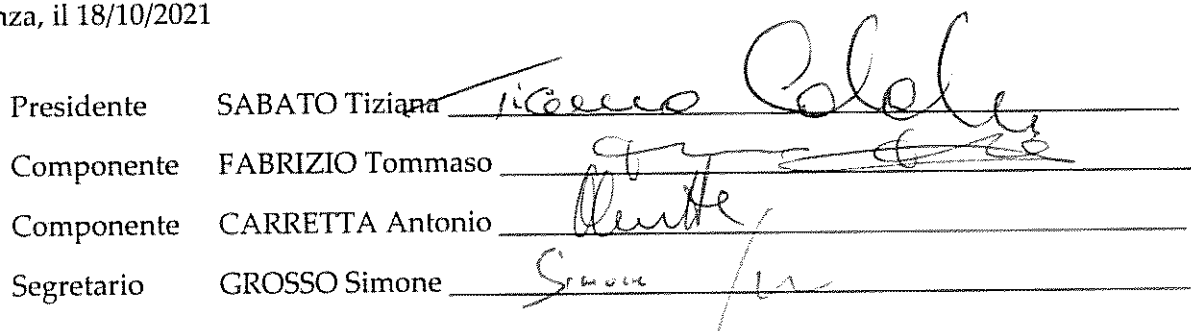 nza, il 18/10/2021
Presidente SABATO Tiziana
Componente FABRIZIO Tommaso
Componente CARRETTA Antonio
Segretario GROSSO Simone Simone